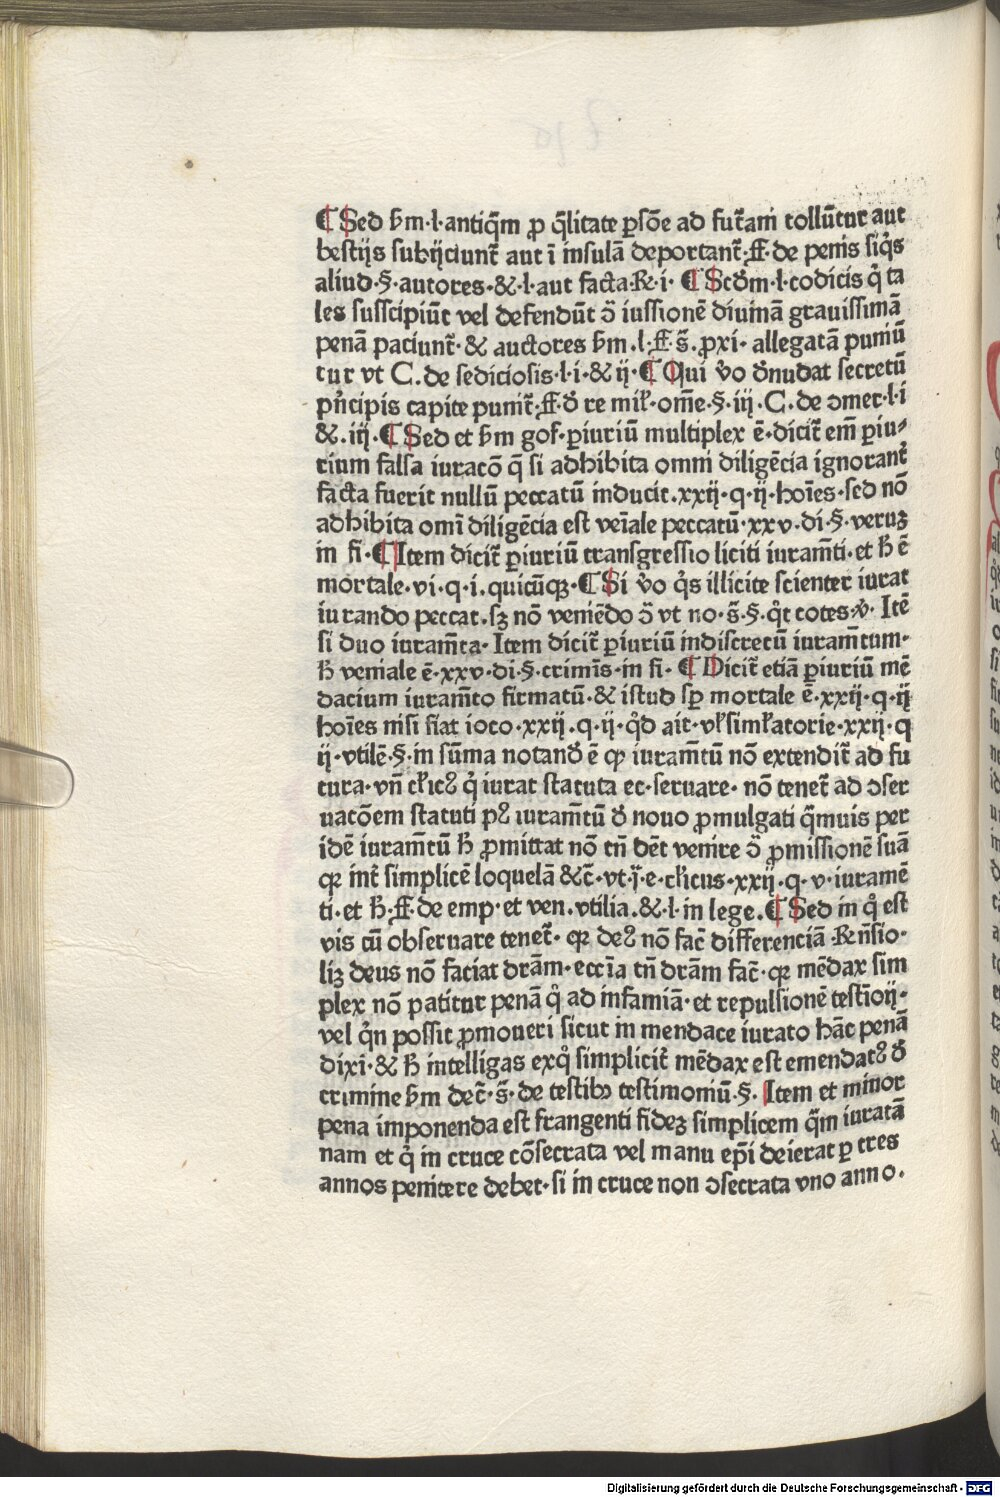 ¶ Sed ẜm·l·antiq̄m ꝓ q̄litate ꝑsōe ad fut̃am tollūtur aut
bestijs subijciunt̃ aut ī insulā deportant̃·ff·de penis siq̇s
aliud·§·autores·&·l·aut facta·R·i· ¶ Scd̄m·l·codicis q̇ ta
les susscipiūt vel defendūt ↄ̄ iussionē diuinā grauissimā
penā paciunt̃· & auctores ẜm·l·ff·s̄·ꝓxi·allegatā puniū
tur vt C. de sediciosis·l·i·& ij·¶ Qui v̊o d̄nudat secretū
pñcipis capite punit̃·ff·d̄ re mil̃·om̄e·§·iij·C·de ↄmer·l·i
&·iij·¶ Sed et ẜm gof·ꝑiuriū multiplex ē·dicit̃ em̄ ꝑiu⸗
rium falsa iuracō q̄ si adhibita omni diligēcia ignorant̃
facta fuerit nullū peccatū inducit·xxij·q·ij·hoīes·sed nō
adhibita omī diligēcia est veīale peccatū·xxv·di·§·veruꝫ
in fi·¶ Item dicit̃ ꝑiuriū transgressio liciti iuram̄ti·et h̄ ē
mortale·vi·q·i·quicūqꝫ·¶ Si v̊o q̇s illicite scienter iurat
iurando peccat·sꝫ nō veniēdo ↄ̄ vt no·s̄·§·q̇t totes·ꝟ· Itē
si duo iuram̄ta· Item dicit̃ ꝑiuriū indiscretū iuram̄tum·
h̄ veniale ē·xxv·di·§·crimīs·in fi· ¶ Dicit̃ etiā ꝑiuriū mē
dacium iuram̄to firmatū·& istud sꝑ mortale ē·xxij·q·ij
hoīes nisi fiat ioco·xxij·q·ij·q̊d ait·vl̃ siml̃atorie·xxij·q
ij·vtilē·§·in sūma notand̄ ē ꝙ iuram̄tū nō extendit̃ ad fu
tura·vñ cl̃icꝰ q̇ iurat statuta ec·seruare· nō tenet̃ ad ↄser
uacōem statuti pꝰ iuram̄tū d̄ nouo ꝓmulgati q̄muis per
idē iuram̄tū h̄ ꝓmittat nō tñ dēt venire ↄ̄ ꝓmissionē suā
ꝙ int̃ simplicē loquelā &c̄·vt·j̄·e·cl̃icus·xxij·q·v·iuramē
ti·et h̄·ff·de emp·et ven·vtilia·&·l·in lege·¶ Sed in q̊ est
vis cū obseruare tenet̃· ꝙ deꝰ nō fac̄ differenciā·Rn̄sio·
liꝫ deus nō faciat dr̄am·eccīa tñ dr̄am fac̄·ꝙ mēdax sim
plex nō patitur penā q̊ ad infamiā·et repulsionē testīoij·
vel q̇n possit ꝓmoueri sicut in mendace iurato hāc penā
dixi·& h̄ intelligas exq̊ simplicit̃ mēdax est emendatꝰ d̄
crimine ẜm dec̄·s̄·de testibꝫ testimoniū·§· Item et minor
pena imponenda est frangenti fideꝫ simplicem q̄m iuratā
nam et q̇ in cruce cōsecrata vel manu ep̄i deierat ꝑ tres
annos penitere debet·si in cruce non ↄsecrata vno anno·
Digitalisierung gefördert durch die Deutsche Forschungsgemeinschaft - DFG